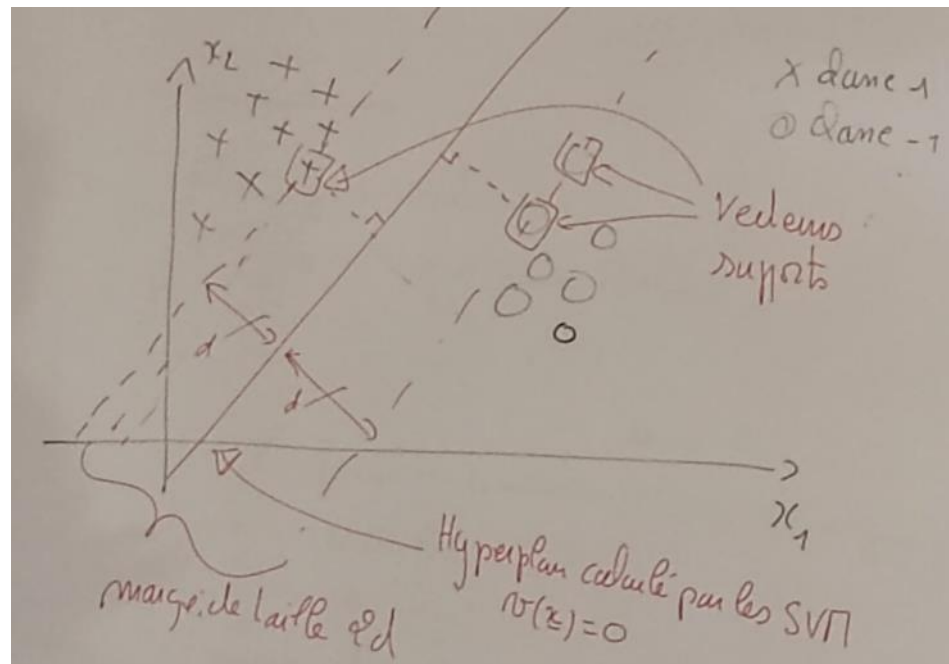 x2
x classe 1
o classe -1
Vecteurs
supports
d
d
x1
Hyperplan calculé par les SVM
v(x)=0
marge de taille 2d